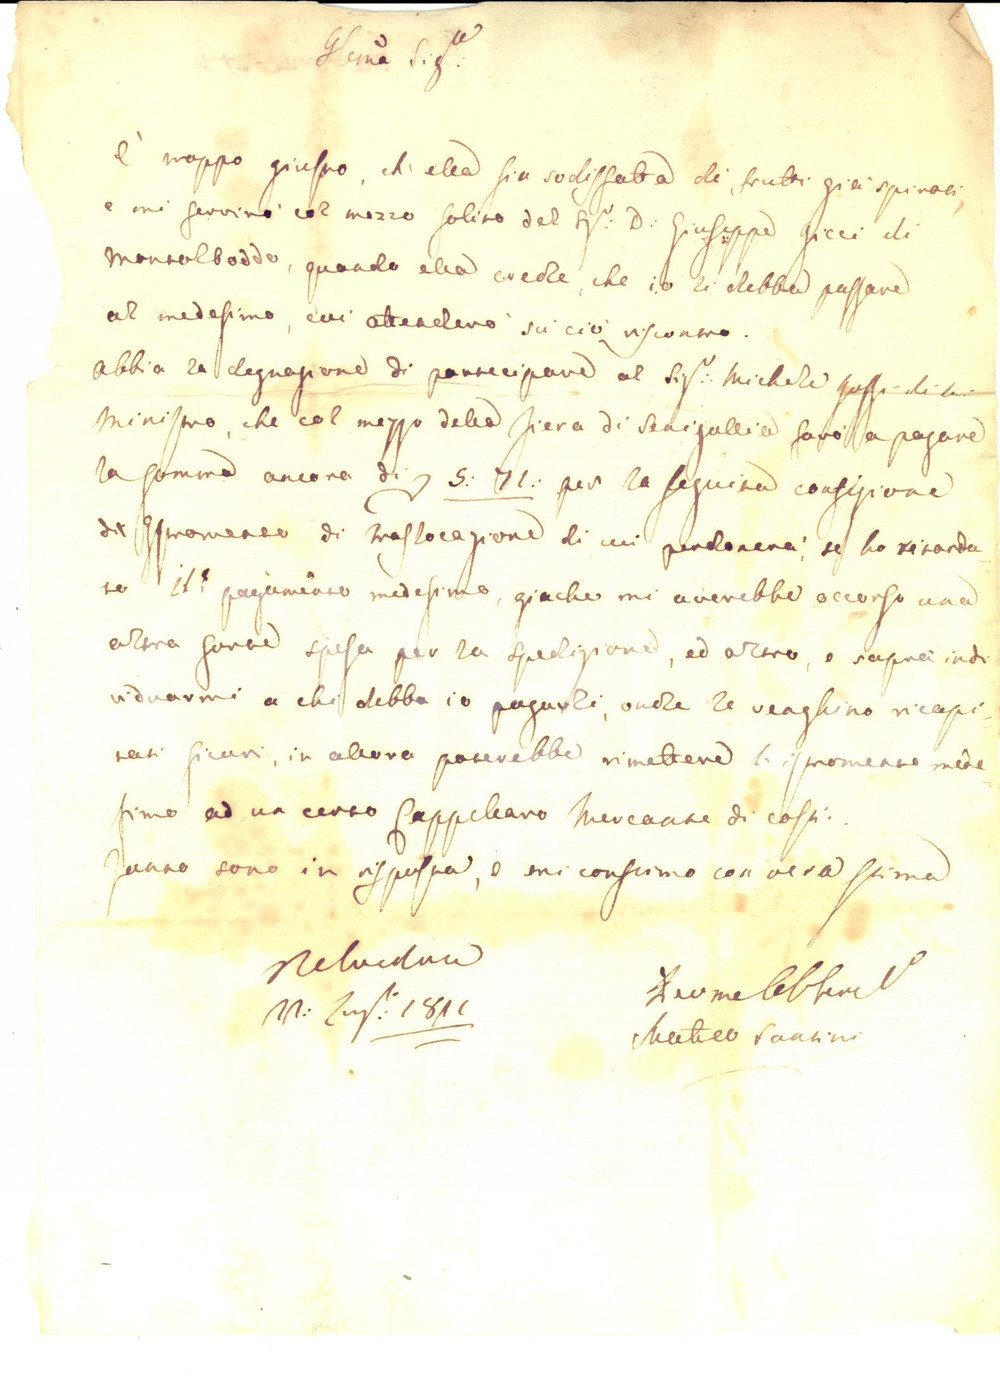 Illma Sigra
È troppo giusto, ch'ella sia sodisfatta di frutti già spirati,
e mi servirò col mezzo solito del Sigr: D: Giuseppe Ricci di
Montalboddo, quando ella crede, che io li debba passare
al medesimo, cui attenderò su ciò riscontro.
Abbia la degnazione di partecipare al Sigr: Michele
Ministro, che col mezzo della fiera di Senigallia farò a pagare
la somma ancora di S: 71: per la seguita confezione
di Istromento di traslocazione di cui perdonerà, se ho ritarda-
to il pagamento medesimo, giache mi averebbe occorso una
altra forte spesa per la spedizione, ed altro, e saprà indi
viduarmi a chi debba io pagarli, onde le venghino ricapi-
tati sicuri, in allora poterebbe rimettere l'istromento mede-
simo ad un certo Cappellaro Mercante di costì.
Tanto sono in risposta, e mi confermo con vera stima
Belvedere
1811
Matteo Santini